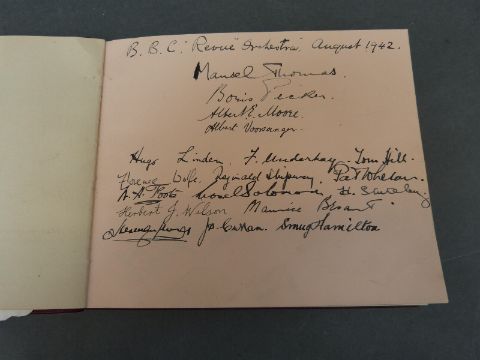 B.B.C. Revue Orchestra. August 1942.
Mansel Thomas.
Boris Pecker.
Albert E. Moore.
Albert Voorsanger.
Hugo Linden. F. Underhay. Tom Hill.
Florence Wolfe. Reginald Shipway. Pat Whelan.
A. H. Foote Lionel Solomon H.
Herbert G. Wilson Maurice Besant.
J. Curran. Smug Hamilton